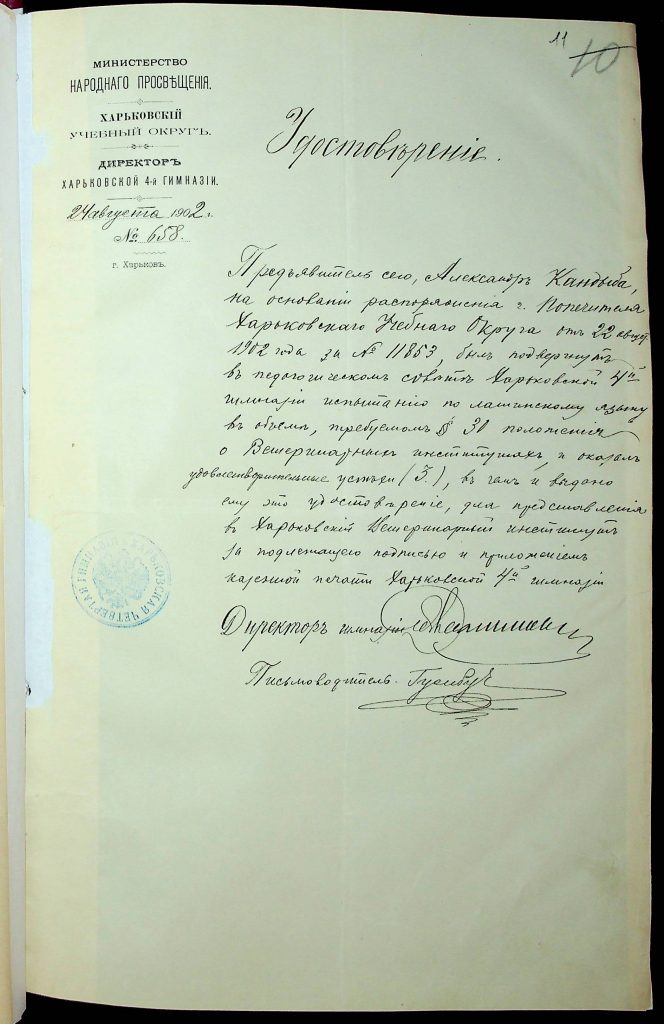 11
10
МИНИСТЕРСТВО
НАРОДНАГО ПРОСВѢЩЕНІЯ.
ХАРЬКОВСКІЙ
УЧЕБНЫЙ ОКРУГЪ.
ДИРЕКТОРЪ
ХАРЬКОВСКОЙ 4-й ГИМНАЗІИ.
24 августа 1902 г.
№ 658.
г. Харьковъ.
Удостовѣреніе.
Предъявитель сего, Александръ Кандыба,
на основаніи распоряженія г. Попечителя
Харьковскаго Учебнаго Округа отъ 22 август.
1902 года за № 11853, былъ подвергнутъ
въ педагогическомъ совѣтѣ Харьковской 4-й
гимназіи испытанію по латинскому языку
въ объемѣ, требуемомъ § 30 положенія
о Ветеринарныхъ институтахъ, и оказалъ
удовлетворительные успѣхи (3.), въ чемъ и выдано
ему это удостовѣреніе, для представленія
въ Харьковскій Ветеринарный институтъ
за подлежащею подписью и приложеніемъ
казенной печати Харьковской 4-й гимназіи
ХАРЬКОВСКАЯ ЧЕТВЕРТАЯ ГИМНАЗІЯ
Директоръ гимназіи
Письмоводитель